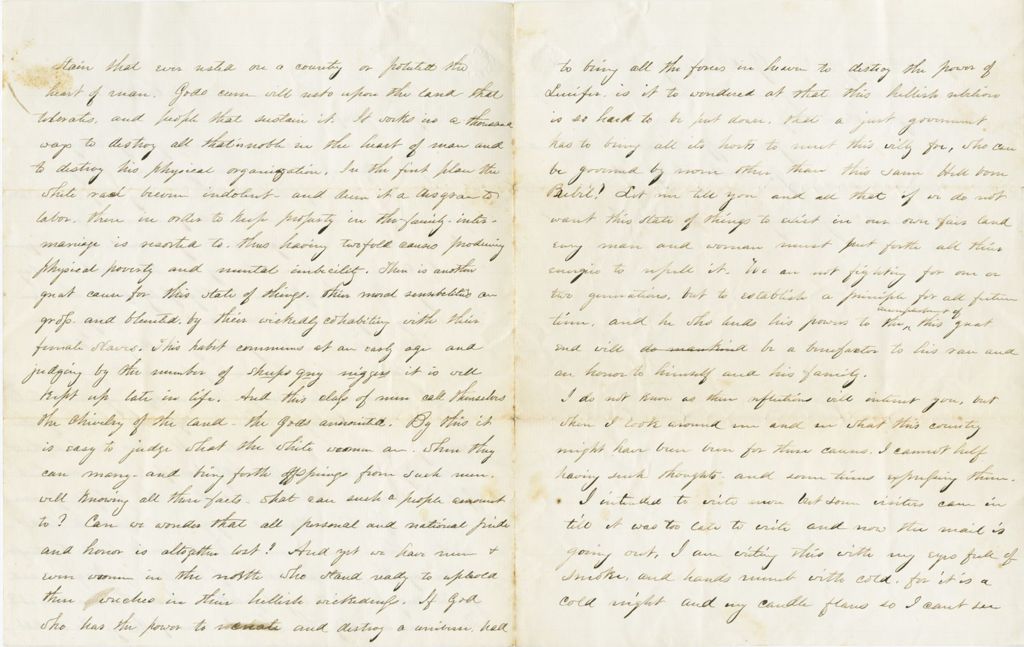 stain that ever rested on a country or poluted the
heart of man. Gods curse will rest upon the land that
tolerates, and people that sustain it. It works in a thousand
ways to destroy all that is noble in the heart of man and
to destroy his physical organization. In the first place the
white race become indolent and deem it a disgrace to
labor. then in order to keep property in the family inter-
marriage is resorted to. thus having twofold causes producing
physical poverty and mental imbecility. Then is another
great cause for this state of things. their moral sensibilities are
gross. and blunted. by their wickedly cohabiting with their
female slaves. This habit commences at an early age and
judging by the number of sheeps gray niggers it is well
kept up late in life. And this class of men call themselves
the Chivalry of the land - the Gods annointed. By this it
is easy to judge what the white women are. When they
can marry and bring forth offsprings from such men.
well knowing all these facts. What can such a people amount
to? Can we wonder that all personal and national pride
and honor is altogether lost! And yet we have men &
even women in the north who stand ready to uphold
these wretches in their hellish wickedness. If God
who has the power to create and destroy a universe, had
to bring all the forces in heaven to destroy the power of
Lucifer. is it to wondered at that this hellish rebelion
is so hard to be put down. that a just goverment
has to bring all its hosts to meet this wily foe, who can
be governed by none other than this same Hell born
Rebel? Let me tell you and all that if we do not
want this state of things to exist in our own fair land
every man and woman must put forth all their
energies to repell it. We are not fighting for one or
two generations, but to establish a principle for all future
time, and he who lends his powers to the accomplishment of this great
end will do mankind be a benefactor to his race and
an honor to himself and his family.
I do not know as these reflections will interest you, but
when I look around me and see what this country
might have been even for these causes. I cannot help
having such thoughts. and some times expressing them.
I intended to write more but some visitors came in
till it was too late to write and now the mail is
going out. I am writing this with my eyes full of
smoke, and hands numb with cold. for it is a
cold night and my candle flares so I cant see